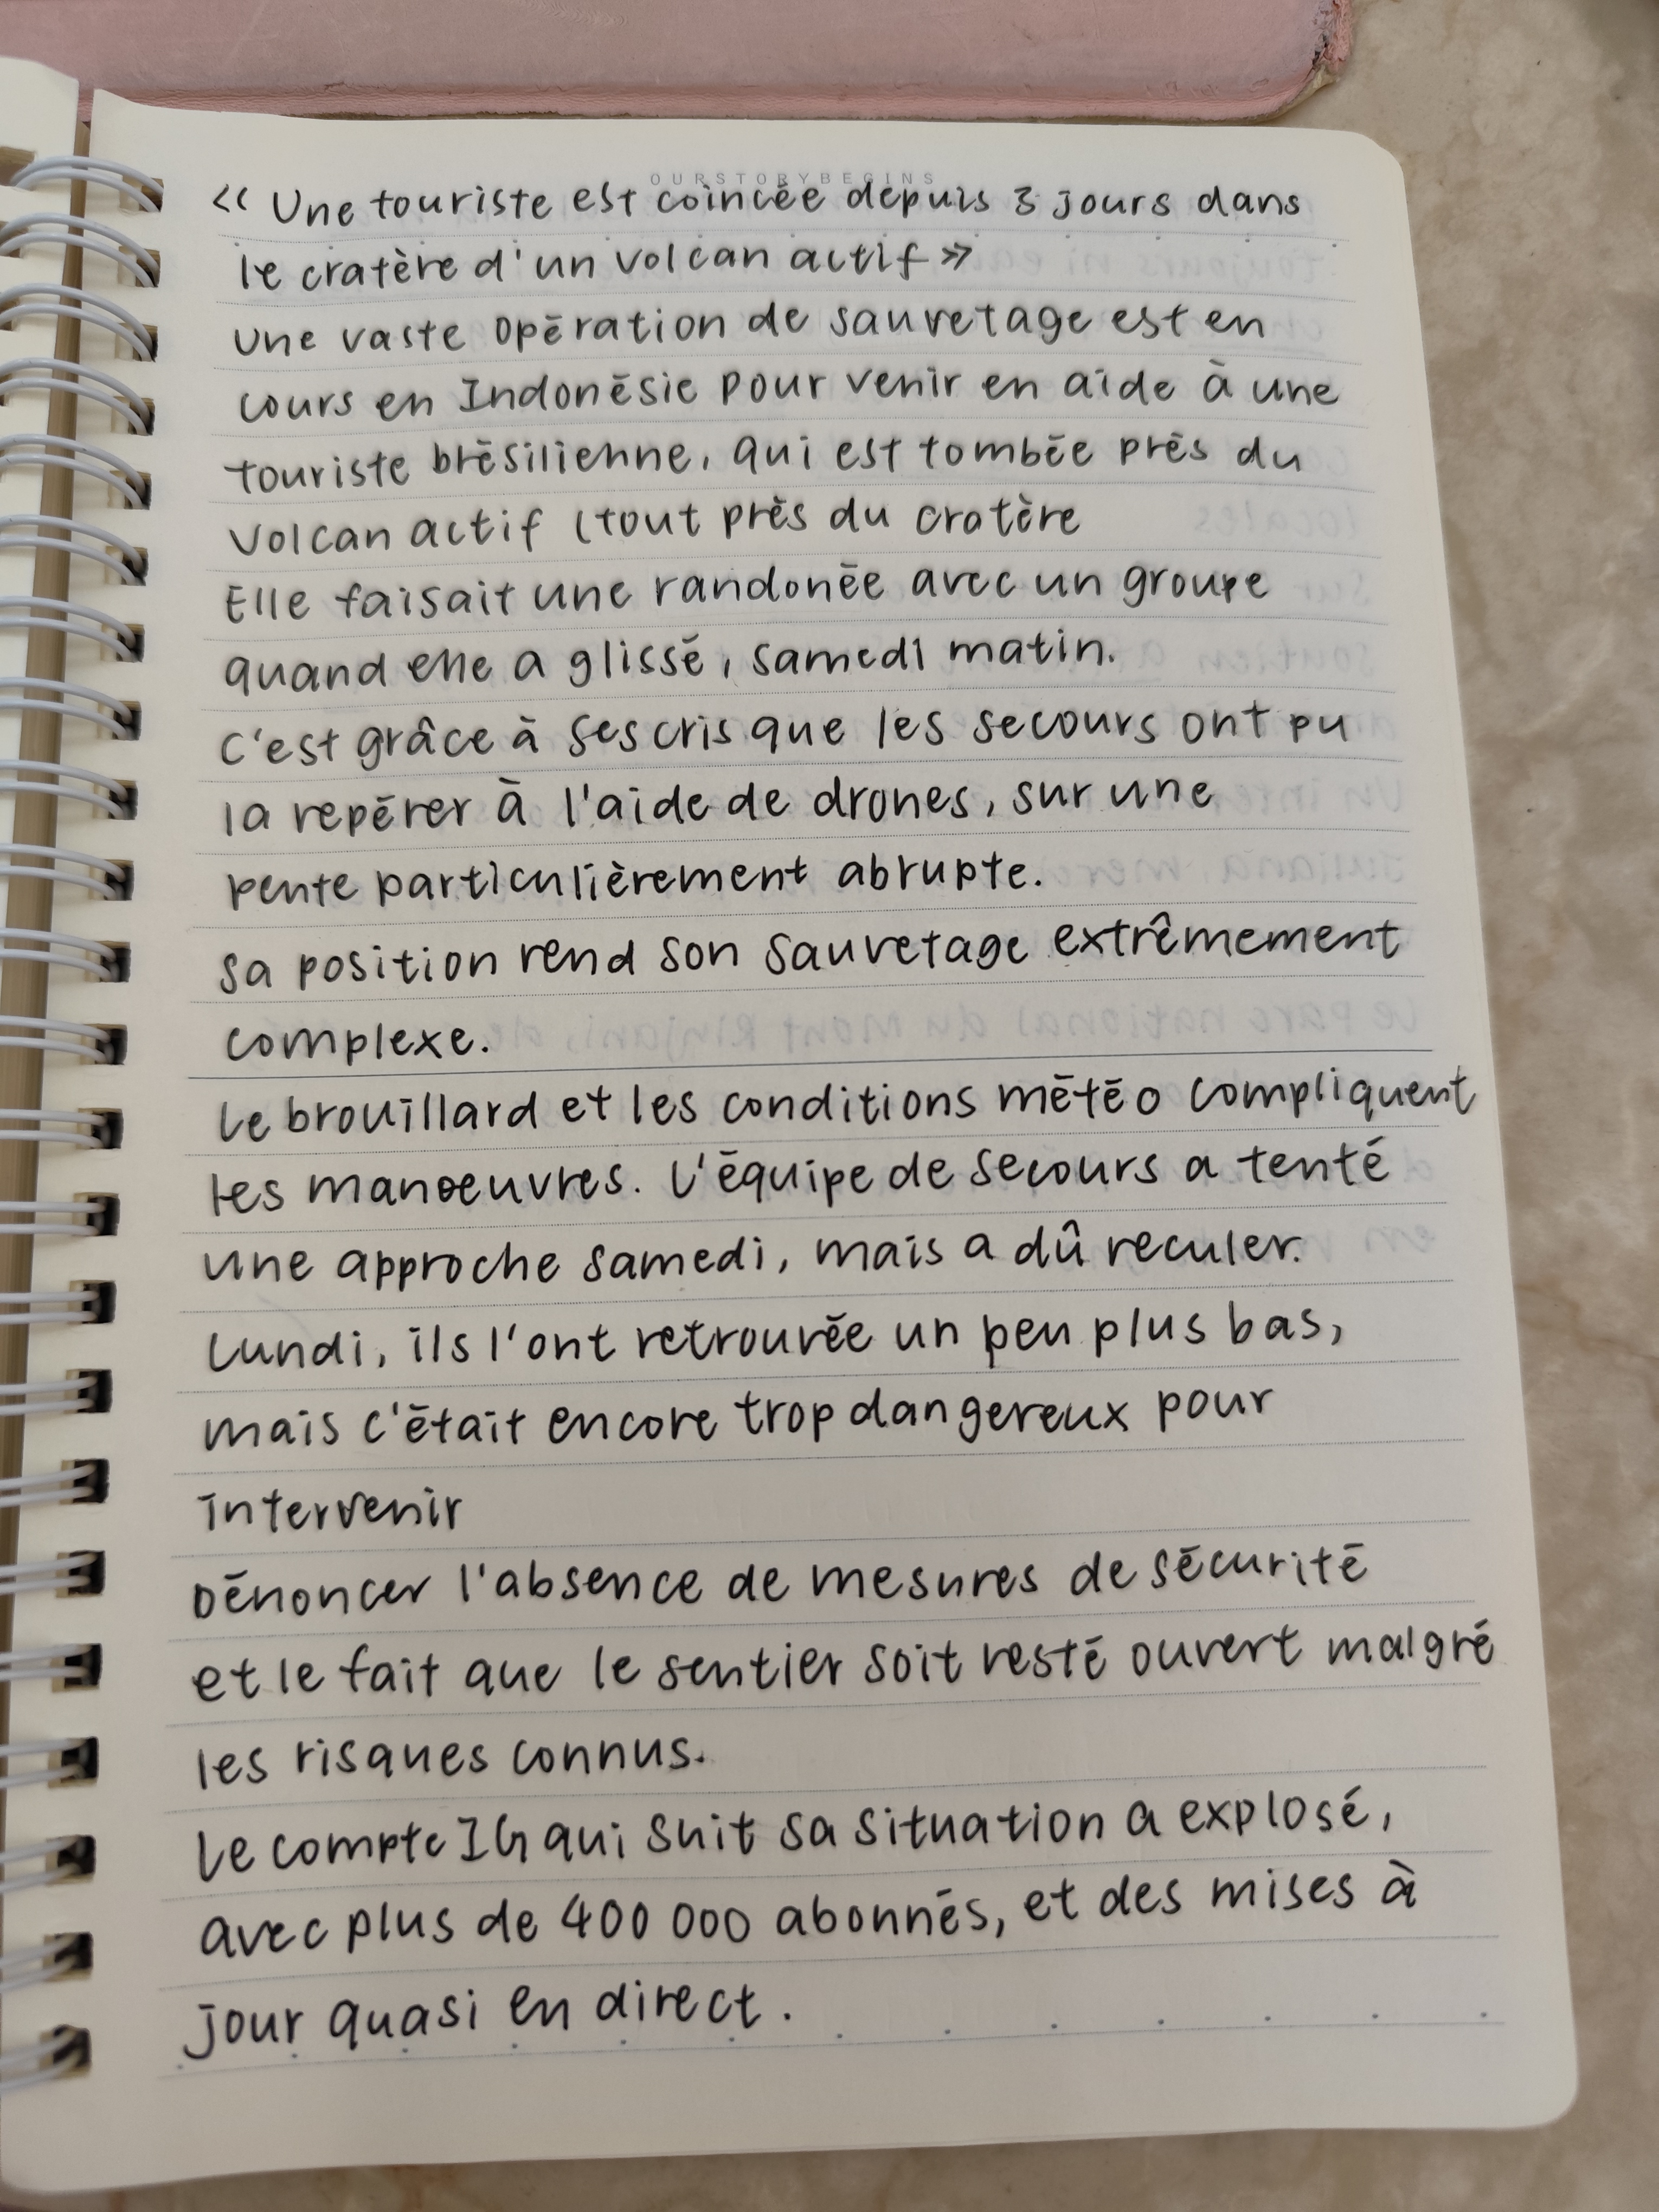 OURSTORYBEGINS
« Une touriste est coincée depuis 3 jours dans
le cratère d'un volcan actif »
Une vaste opération de sauvetage est en
cours en Indonésie pour venir en aide à une
touriste brésilienne, qui est tombée près du
volcan actif (tout près du cratère
Elle faisait une randonée avec un groupe
quand elle a glissé, samedi matin.
C'est grâce à ses cris que les secours ont pu
la repérer à l'aide de drones, sur une
pente particulièrement abrupte.
Sa position rend son sauvetage extrêmement
complexe.
Le brouillard et les conditions météo compliquent
les manoeuvres. L'équipe de secours a tenté
une approche samedi, mais a dû reculer.
Lundi, ils l'ont retrouvée un peu plus bas,
mais c'était encore trop dangereux pour
intervenir
Dénoncer l'absence de mesures de sécurité
et le fait que le sentier soit resté ouvert malgré
les risques connus.
Le compte IG qui suit sa situation a explosé,
avec plus de 400 000 abonnés, et des mises à
jour quasi en direct.